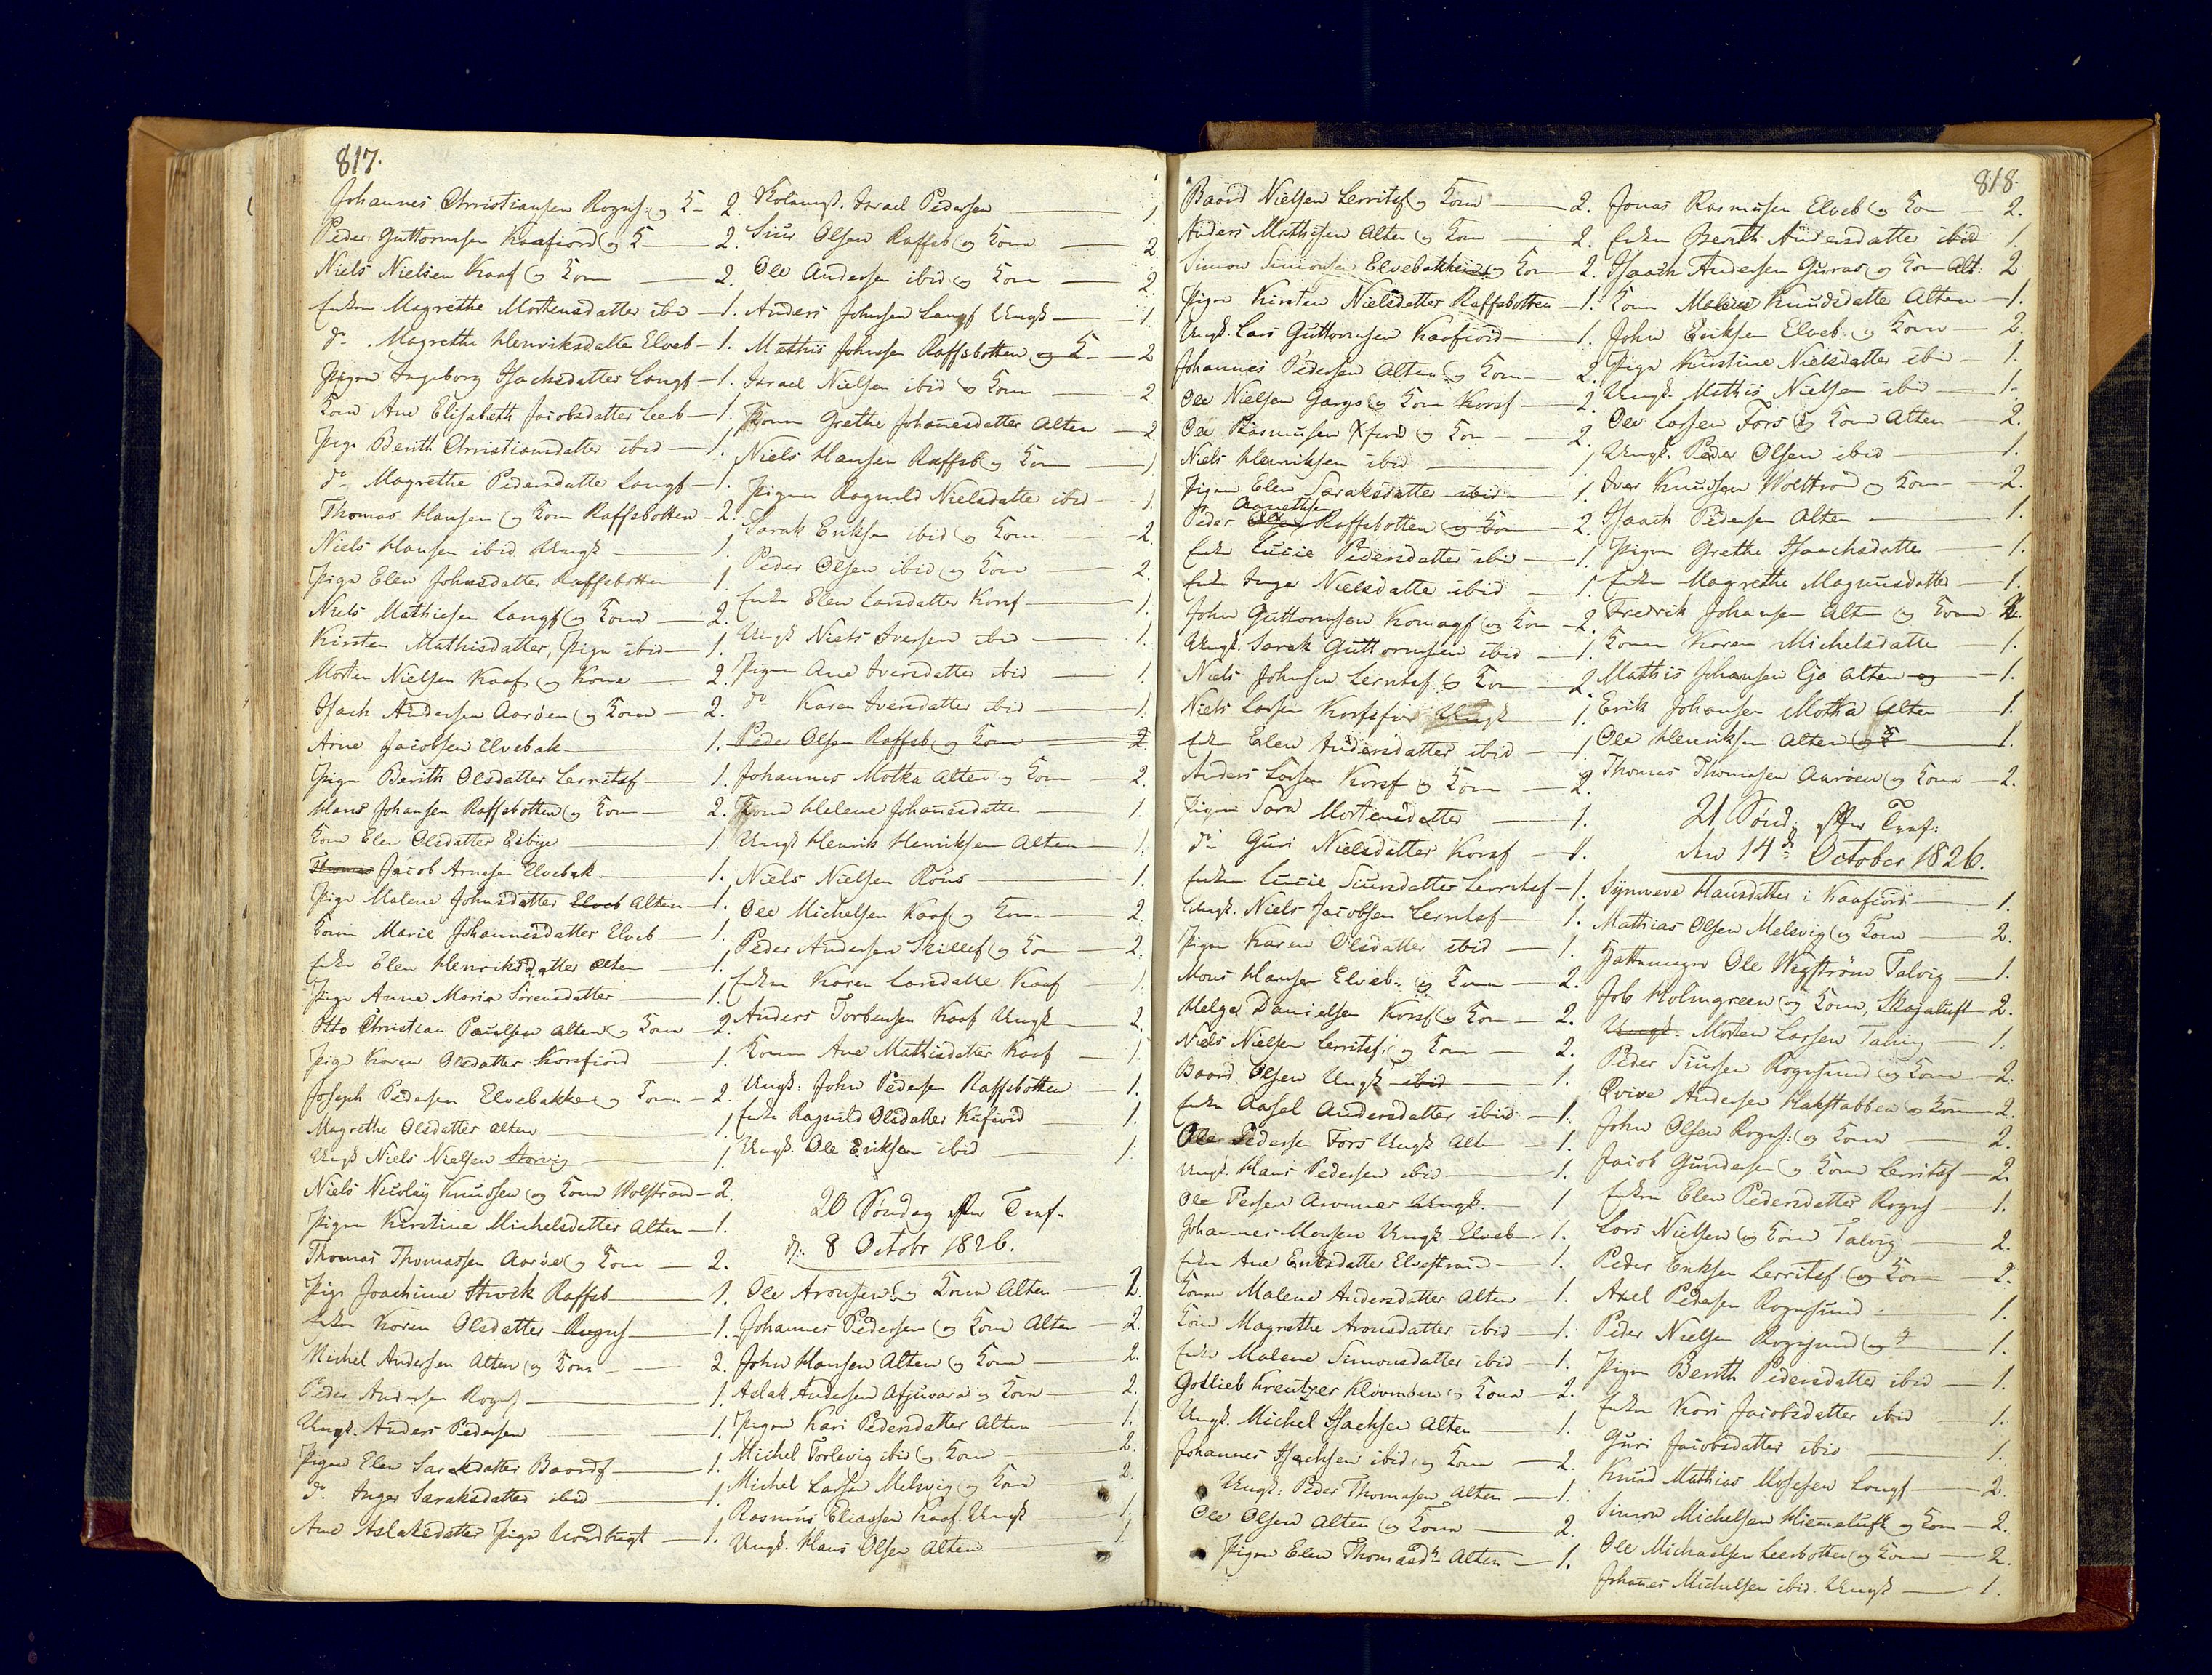 817.
Johannes Christiansen Rogns: og K- 2.
Peder Guttormsen Kaafiord og K 2.
Niels Nielsen Kaaf og Kone 2.
Enken Magrethe Mortensdatter ibid 1.
do. Magrethe Henriksdatter Elveb 1.
Pigen Ingeborg Isachsdatter Langf 1.
Kone Ane Elisabeth Jacobsdatter Leeb 1.
Pige Berith Christiansdatter ibid 1.
do. Magrethe Pedersdatter Langf 1.
Thomas Hansen og Kone Raffsbotten 2.
Niels Hansen ibid Ungk 1.
Pige Elen Johnsdatter Raffsbotten 1.
Niels Mathisen Langf og Kone 2.
Kirsten Mathisdatter, Pige ibid 1.
Morten Nielsen Kaaf og Kone 2.
Isach Andersen Aarøen og Kone 2.
Arne Jacobsen Elvebak 1.
Pige Berith Olsdatter Lerritsf 1.
Hans Johansen Raffsbotten og Kone 2.
Kone Elen Olsdatter Eibye 1.
Thomas Jacob Arnesen Elvebak 1.
Pige Malene Johnsdatter Elveb Alten 1.
Konen Marie Johannesdatter Elveb 1.
Enke Elen Henriksdatter Alten 1.
Pige Anne Maria Sørensdatter 1.
Otto Christian Paulsen Alten og Kone 2.
Pige Karen Olsdatter Korsfiord 1.
Joseph Pedersen Elvebakken og Kone 2.
Magrethe Olsdatter Alten 1.
Ungk Niels Nielsen Storvig 1.
Niels Nicolay Knudsen og Kone Wolstrand 2.
Pigen Kirstine Michelsdatter Alten 1.
Thomas Thomassen Aarøe og Kone 2.
Pige Joachime Struck Raffsb 1.
Enken Karen Olsdatter Rognf 1.
Michel Andersen Alten og Kone 2.
Peder Andersen Rognf 1.
Ungk. Anders Pedersen 1.
Pigen Elen Saraksdatter Baardf 1.
do. Inger Saraksdatter ibid 1.
Ane Aslaksdatter Pige Nordbugt 1.
Israel Pedersen 1.
Siur Olsen Raffsb og Kone 2.
Ole Andersen ibid og Kone 2.
Anders Johnsen Langf Ungk 1.
Mathis Johnsen Raffsbotten og K- 2
Israel Nielsen ibid og Kone 2.
Konen Grethe Johanesdatter Alten 2.
Niels Hansen Raffsb og Kone 1
Pigen Ragnild Nielsdatter ibid 1.
Sarak Eriksen ibid og Kone 2.
Peder Olsen ibid og Kone 2.
Enken Elen Larsdatter Korsf 1.
Ungk Niels Iversen ibid 1.
Pigen Ane Iversdatter ibid 1.
do. Karen Iversdatter ibid 1.
Peder Olsen Raffsb og Kone 2
Johannes Motka Alten og Kone 2.
Kone Helene Johanesdatter 1.
Ungk Henrik Henriksen Alten 1.
Niels Nielsen Røns 1.
Ole Michelsen Kaaf og Kone 2.
Peder Andersen Skillef og Kone 2.
Enken Karen Larsdatter Kaaf 1.
Anders Torbensen Kaaf Ungk 2.
Konen Ane Mathisdatter Kaaf 1.
Ungk: John Pedersen Raffsbotten 1.
Enke Ragnild Olsdatter Kufiord 1.
Ungk. Ole Eriksen ibid 1.
20 Søndag efter Trnf.
d: 8 Octobr 1826.
Ole Aronsen og Kone Alten 2.
Johannes Pedersen og Kone Alten 2.
John Hansen Alten og Kone 2.
Aslak Andersen Afjuvara og Kone 2.
Pigen Kari Pedersdatter Alten 1.
Michel Torlevig ibid og Kone 2.
Michel Larsen Melsvig og Kone 2.
Rasmus Eliassen Kaaf. Ungk 1.
Ungk. Hans Olsen Alten 1.
818.
Baard Nielsen Lerritsf og Kone 2.
Anders Mathisen Alten og Kone 2.
Simon Simonsen Elvebakken og Kone 2.
Pigen Kirsten Nielsdatter Raffsbotten 1.
Ungk. Lars Guttormsen Kaafiord 1.
Johannes Pedersen Alten og Kone 2.
Ole Nielsen Gargo og Kone Korsf 2.
Ole Rasmusen Xfiord og Kone 2.
Niels Henriksen ibid 1.
Pigen Elen Saraksdatter ibid 1.
Peder Olsen Raffsbotten og Kone 2.
Enken Lucie Pedersdatter ibid 1.
Enken Inger Nielsdatter ibid 1.
John Guttormsen Komagf og Kone 2.
Ungk. Sarak Guttormsen ibid 1.
Niels Johnsen Lerritsf og Kone 2.
Niels Larsen Korsfiord Ungk 1.
Elen Andersdatter ibid 1.
Anders Larsen Korsf og Kone 2.
Pigen Sara Mortensdatter 1.
do. Guri Nielsdatter Korsf 1.
Enken Lucie Siursdatter Lerritsf 1.
Ungk. Niels Jacobsen Lerritsf 1.
Pigen Karen Olsdatter ibid 1.
Mons Hansen Elveb. og Kone 2.
Helge Danielsen Korsf og Kone 2.
Niels Nielsen Lerritsf. og Kone 2.
Baard Olsen Ungk ibid 1.
Enken Aasel Andersdatter ibid 1.
Ole Pedersen Fors Ungk Alten 1.
Ungk. Hans Pedersen ibid 1.
Ole Persen Aronnes Ungk. 1
Johannes Monsen Ungk Elveb 1.
Enken Ane Eriksdatter Elvestrand 1.
Konen Malene Andersdatter Alten 1.
Kone Magrethe Aronsdatter ibid 1.
Enken Malene Simonsdatter ibid 1.
Gotlieb Kreutzer Kløvmoen og Kone 2.
Ungk. Michel Isachsen Alten 1.
Johannes Isachsen ibid og Kone 2.
Ungk: Peder Thomasen Alten 1.
Ole Olsen Alten og Kone 2.
Pigen Elen Thomasdr Alten 1.
Jonas Rasmusen Elveb og Ko 2.
Enken Berith Andersdatter ibid 1.
Isaach Andersen Gurao og Kone Alt: 2
Konen Malene Knudsdatter Alten 1.
John Eriksen Elveb. og Kone 2.
Pige Kirstine Nielsdatter ibid 1.
Ungk. Mathis Nielsen ibid 1.
Ole Larsen Fors og Kone Alten 2.
Ungk. Peder Olsen ibid 1.
Iver Knudsen Wolstrand og Kone 2.
Isaach Pedersen Alten 1.
Pigen Grethe Isaachsdatter 1.
Enken Magrethe Magnusdatter 1.
Fredrik Johansen Alten og Kone
Konen Karen Michelsdatter 1.
Mathis Johansen Gjo Alten og 1.
Erik Johansen Motka Alten 1.
Ole Henriksen Alten og K 1.
Thomas Thomasen Aarøen og Kone 2.
21 Sønd: efter Trnf:
den 14de October 1826.
Synneve Hansdatter i Kaafiord 1.
Mathias Olsen Melsvig og Kone 2.
Hattemager Ole Wigstrøm Talvig 1.
Job Holmgreen og Kone, Skogaluft 2.
Ungk: Morten Larsen Talvig 1.
Peder Siursen Rognsund og Kone 2.
Qvive Andersen Hakstabben og Kone 2.
John Olsen Rognf: og Kone 2.
Jacob Gundersen og Kone Lerritsf 2.
Enken Elen Pedersdatter Rognf 1.
Lars Nielsen og Kone Talvig 2.
Peder Eriksen Lerritsf og Kone 2.
Axel Pedersen Rognsund 1.
Peder Nielsen Rognsund og 1.
Pigen Berith Pedersdatter ibid 1.
Enken Kari Jacobsdatter ibid 1.
Guri Jacobsdatter ibid 1.
Knud Mathias Mosesen Langf 2.
Simon Michelsen Hiemeluft og Kone 2.
Ole Michaelsen Leerbotten og Kone 2.
Johanes Michelsen ibid Ungk 1.